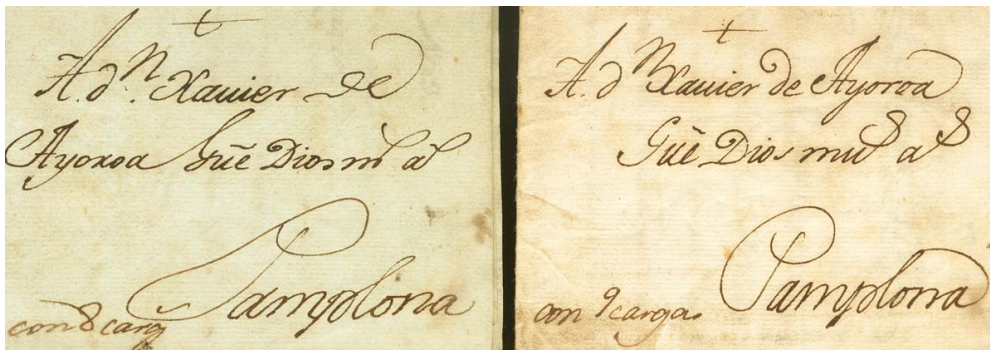 A. dⁿ. Xauier de
Ayoroa Gūe Dios ms as
Pamplona
con 8 carg
A. dⁿ Xauier de Ayoroa
Gūe Dios mus as
Pamplona
con 9 cargas